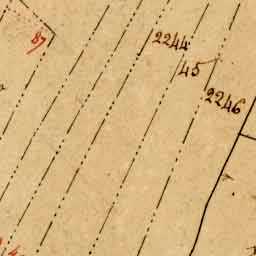 87
2244
45
2246